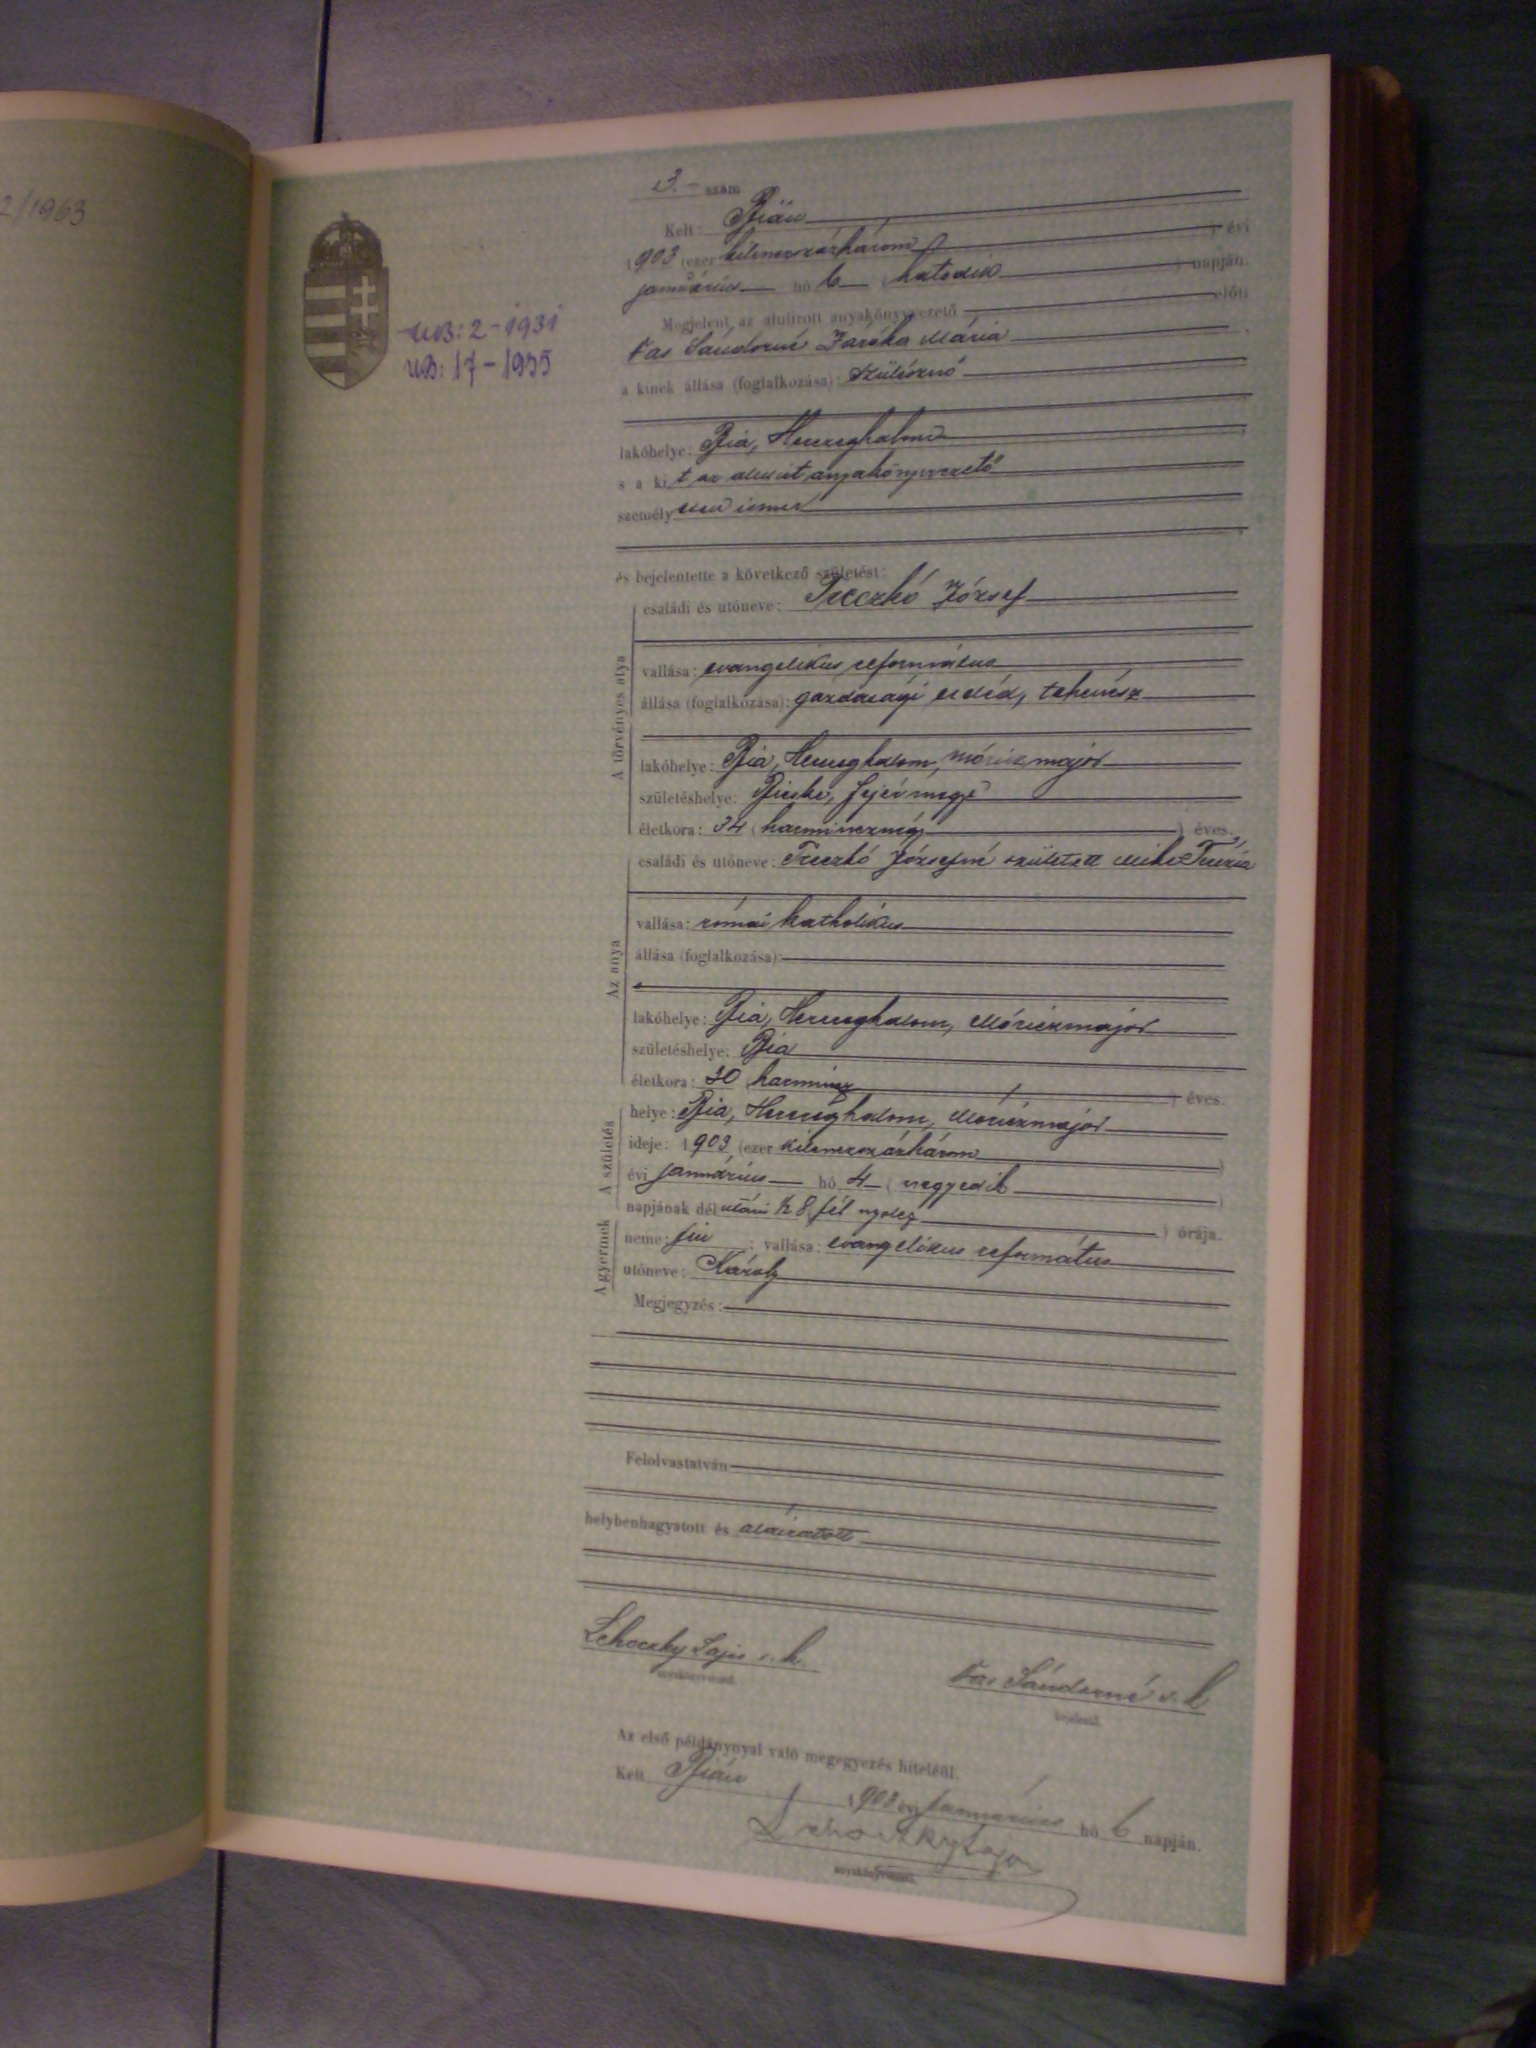 2/1963
UB: 2-1931
UB: 17-1935
3.- szám
Kelt: Bián
1903 (ezer kilenczszázhárom) évi
január hó 6 (hatodik) napján.
Megjelent az alulirott anyakönyvvezető előtt
Vas Sándorné Mária
a kinek állása (foglalkozása): szülésznő
lakóhelye: Bia, Herczeghalom
s a kit az alulírt anyakönyvvezető
személyesen ismer
és bejelentette a következő születést:
A törvényes atya
családi és utóneve: Treczkó József
vallása: evangélikus református
állása (foglalkozása): gazdasági cseléd, tehenész
lakóhelye: Bia, Herczeghalom, Móriczmajor
születéshelye: Bicske, Fejérmegye
életkora: 34 (harmincznégy) éves,
Az anya
családi és utóneve: Treczkó Józsefné született Mike Terézia
vallása: római katholikus
állása (foglalkozása):
lakóhelye: Bia, Herczeghalom, Móriczmajor
születéshelye: Bia
életkora: 30 harmincz) éves.
A születés
helye: Bia, Herczeghalom, Móriczmajor
ideje: 1903 (ezer kilenczszázhárom)
évi január hó 4 (negyedik)
napjának dél utáni ½ 8 fél nyolcz) órája.
A gyermek
neme: fiu; vallása: evangélikus református
utóneve: Károly
Megjegyzés:
Felolvastatván
helybenhagyatott és aláiratott
Lehoczky Lajos s. k.
anyakönyvvezető.
Vas Sándorné s. k
bejelentő.
Az első példánynyal való megegyezés hiteléül.
Kelt Bián 1903 évi január hó 6 napján.
Lehoczky Lajos
anyakönyvvezető.